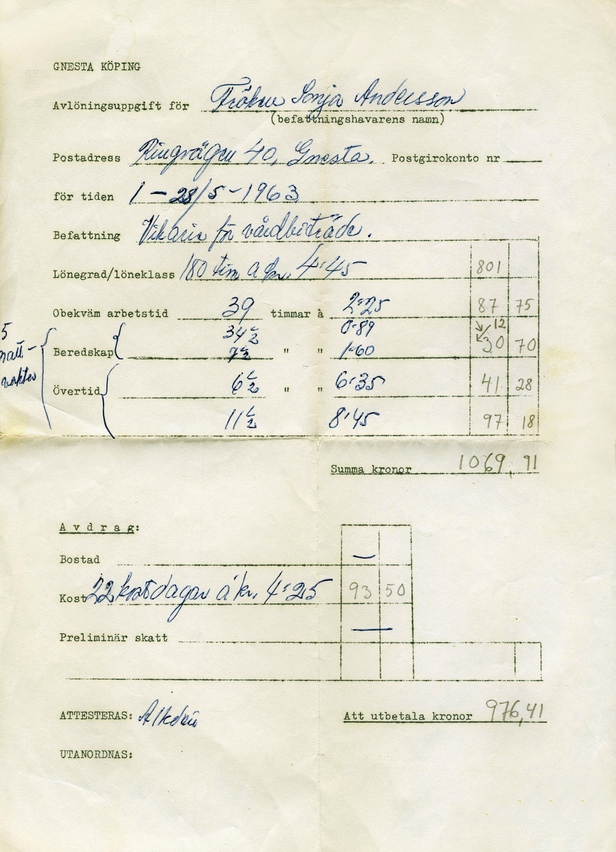 GNESTA KÖPING
Avlöningsuppgift för Fröken Sonja Andersson
(befattningshavarens namn)
Postadress Ringvägen 40, Gnesta. Postgirokonto nr
för tiden 1 – 28/5 – 1963
Befattning Vikarie för vårdbiträde.
Lönegrad/löneklass 180 tim à kr. 4:45 801
Obekväm arbetstid 39 timmar à 2:25 87 75
34½ 0:89 12
5 natt-vakter
Beredskap 7½ " " 1:60 30 70
Övertid 6½ " " 6:35 41 28
11½ 8:45 97 18
Summa kronor 1069,91
Avdrag:
Bostad —
Kost 22 kostdagar à kr. 4:25 93 50
Preliminär skatt —
ATTESTERAS:
Att utbetala kronor 976,41
UTANORDNAS: